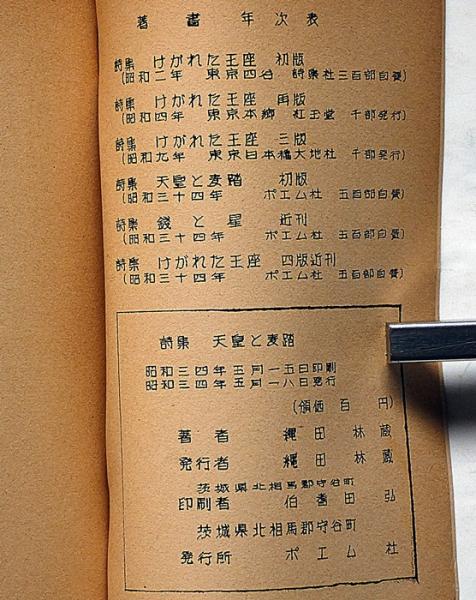 著書年次表
詩集 けがれた王座 初版
(昭和二年 東京四谷 詩集社三百部自費)
詩集 けがれた王座 再版
(昭和四年 東京本郷 紅玉堂 千部発行)
詩集 けがれた王座 三版
(昭和九年 東京日本橋大地社 千部発行)
詩集 天皇と麦踏 初版
(昭和三十四年 ポエム社 五百部自費)
詩集 銭と星 近刊
(昭和三十四年 ポエム社 五百部自費)
詩集 けがれた王座 四版近刊
(昭和三十四年 ポエム社 五百部自費)
詩集 天皇と麦踏
昭和三四年五月一五日印刷
昭和三四年五月一八日発行
(領価百円)
著者 縄田林蔵
発行者 縄田林蔵
茨城県北相馬郡守谷町
印刷者 伯耆田弘
茨城県北相馬郡守谷町
発行所 ポエム社